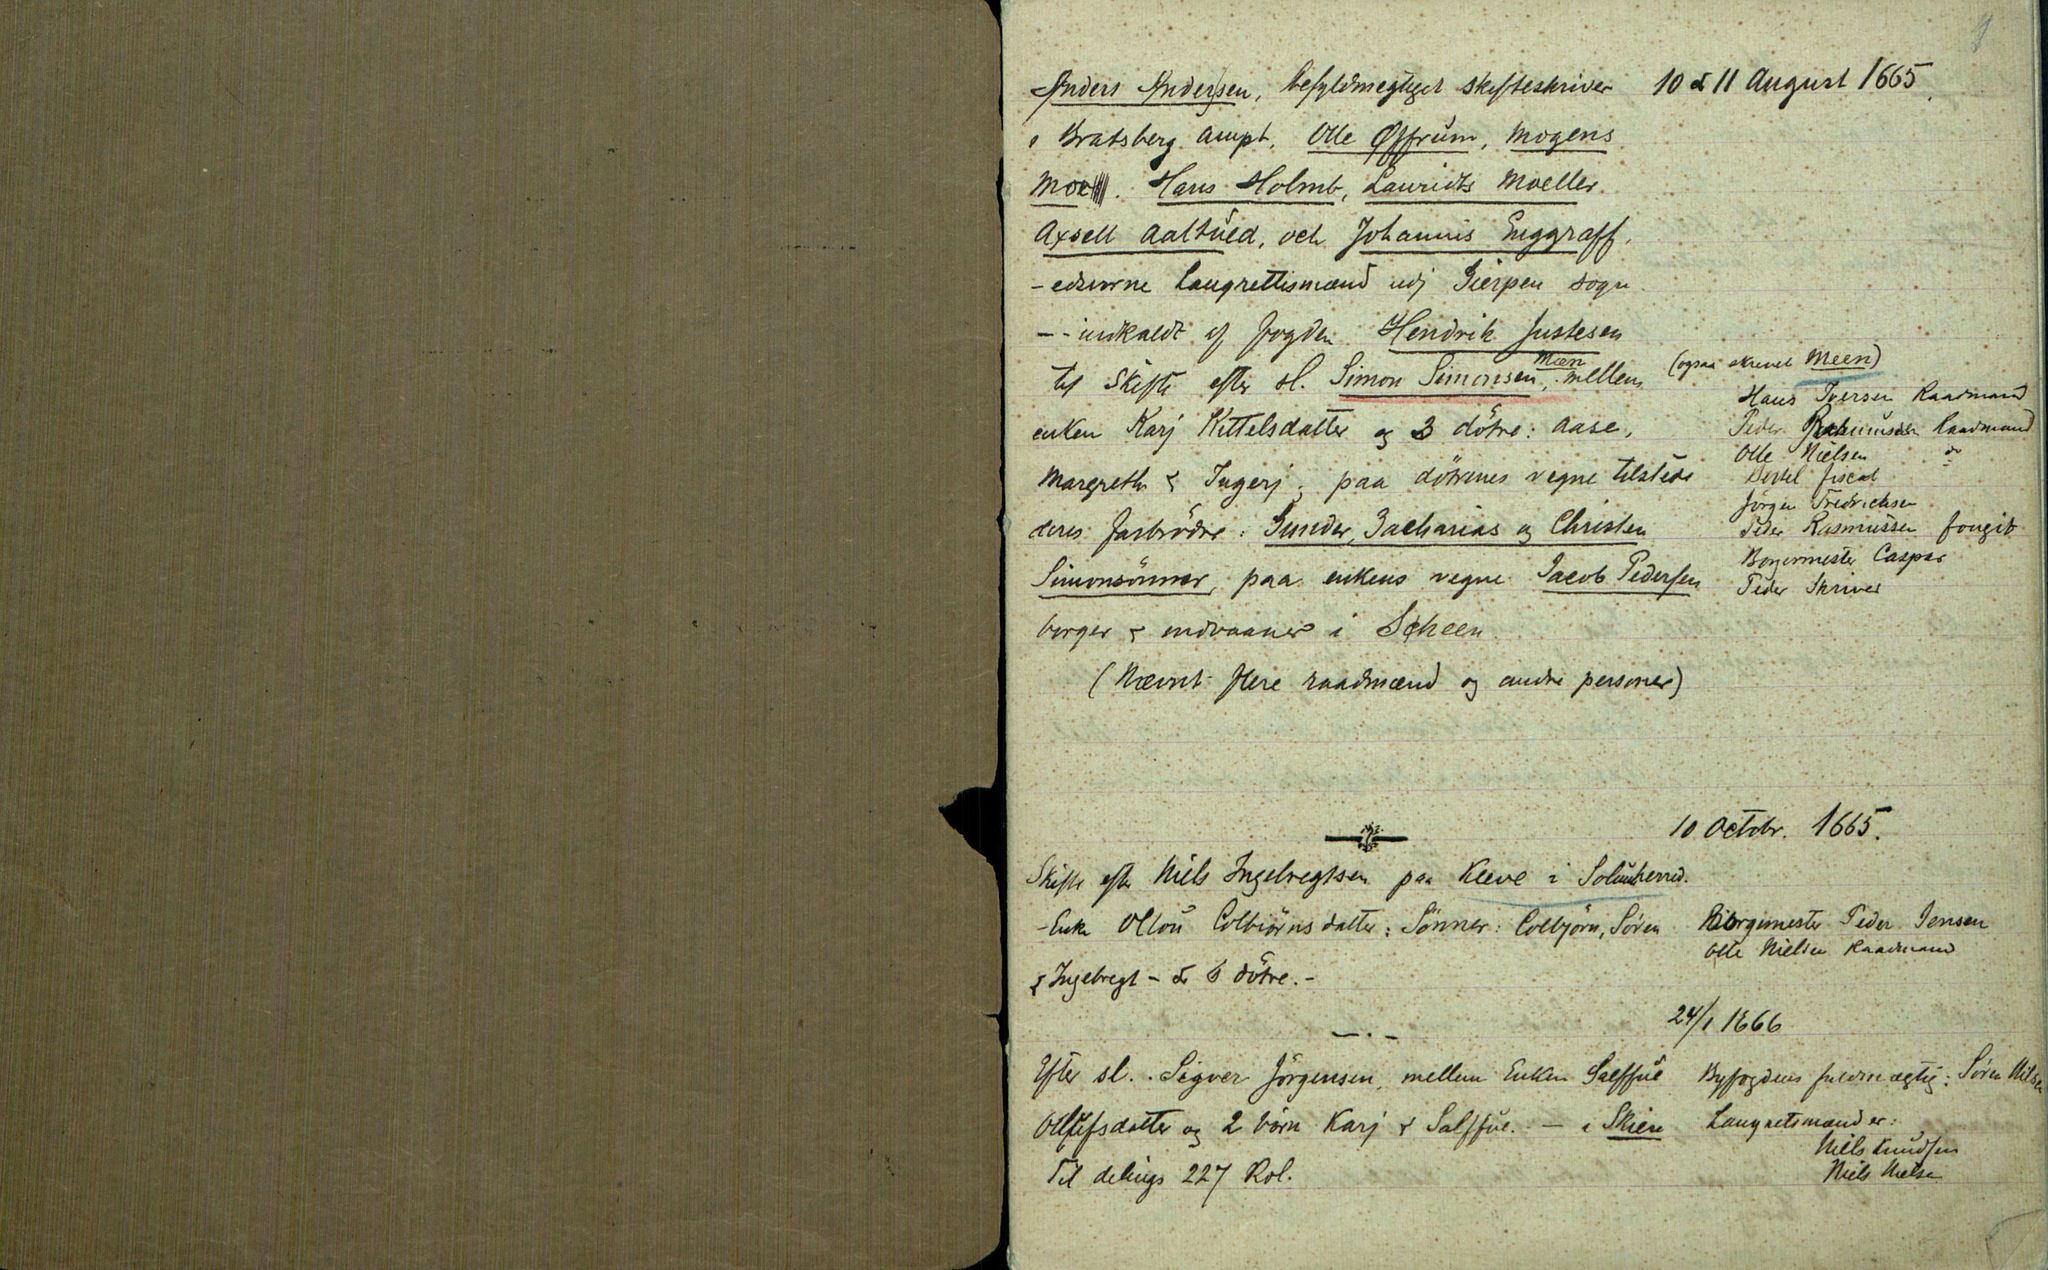 1
Anders Andersen, befuldmegtiget skifteskriver 10 & 11 August 1665.
i Bratsberg ampt, Olle Øffrum, Mogens
Moe. Hans Holmb, Lauridts Moeller
Axsell Aaltued, och Johannis Enggraff,
- edsvorne Laugrettismænd udj Gierpen sogn
- - indkaldt af fogden Hendrik Justesen
til Skifte efter sl. Simon Simonsen Mæn, mellem (ogsaa skrevet Meen)
enken Karj Kittelsdatter og 3 döttre: Aase,
Margrethe & Ingerj; paa döttrenes vegne tilstede
deres farbrödre: Gunder, Zacharias og Christen
Simonsönner, paa enkens vegne Jacob Pedersen
borger & indvaaner i Scheen
(Nævnt flere raadmænd og andre personer)
Hans Iversen Raadmand
Peder Raadmand
Olle Nielsen do
Bertel fiscal
Jörgen Fredrichsen
Peder Rasmussen fougit
Borgermester Caspar
Peder Skriver
10 Octobr. 1665.
Skifte efter Niels Ingebregtsen paa Kleve i Solumherred.
- Enke Ollou Colbiörnsdatter: Sönner: Colbjörn, Sören
& Ingebregt - & 6 döttre. -
Borgimester Peder Jensen
Olle Nielsen Raadmand
24/1 1666
Efter sl. Sigver Jörgensen, mellem Enken Salffue
Olluffsdatter og 2 börn Karj & Salffue. - i Skien
Til delings 227 Rdl.
Byfogdens fuldmægtig: Sören Nilsen
Laugretsmænd er:
Niels Knudsen
Niels Nielse